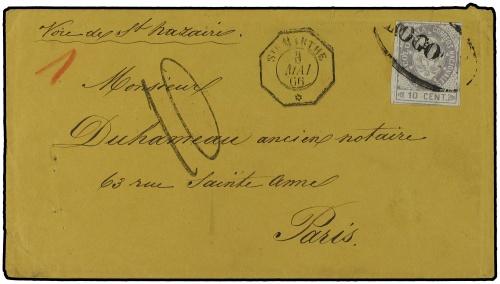 Voie de St Nazaire.
STE MARTHE
8
MAI
66
BOGO
10 CENT.
1
10
Monsieur
Duhameau ancien notaire
63 rue Sainte Anne
Paris.